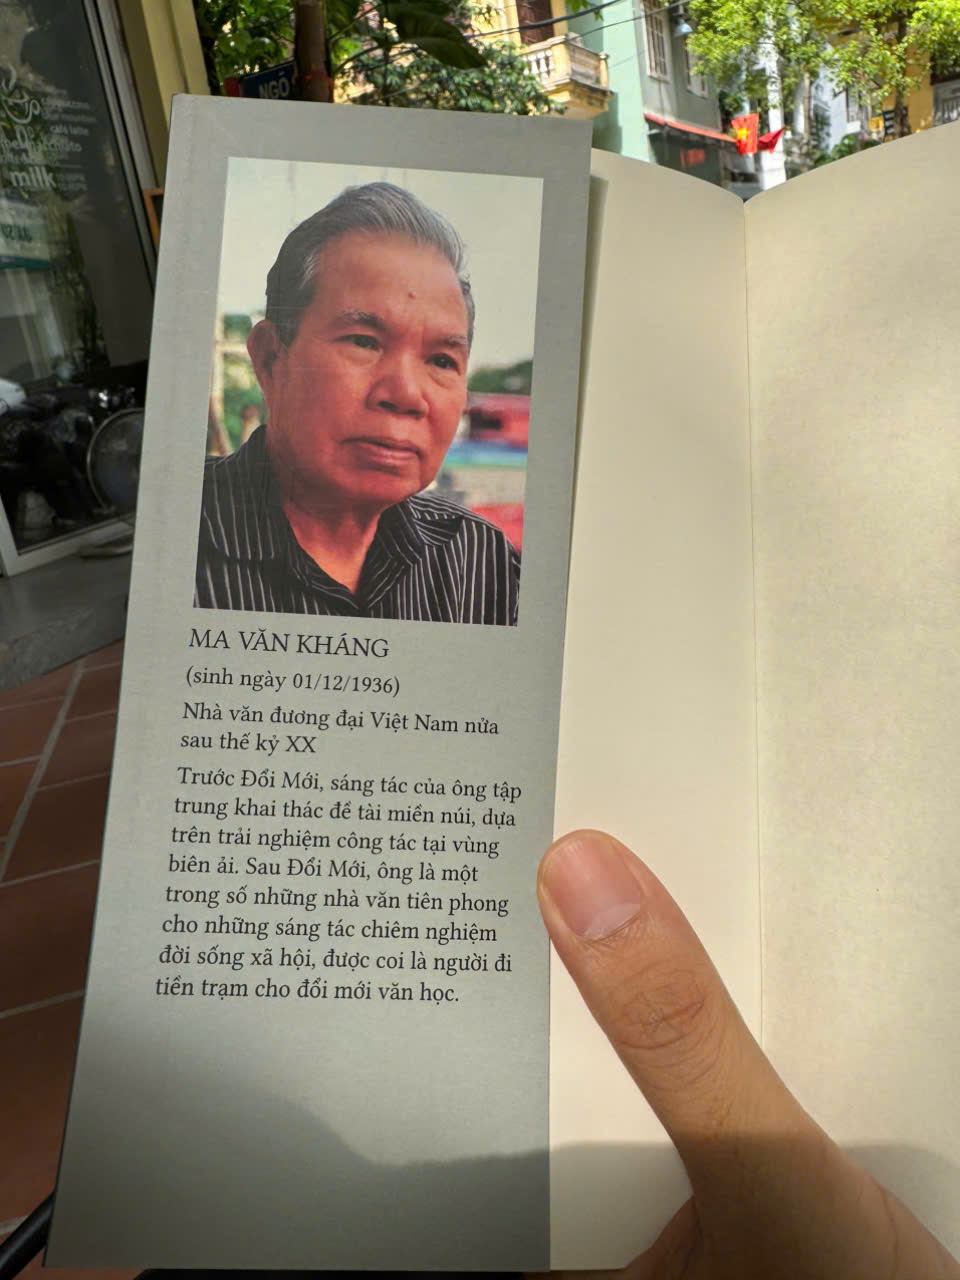 NGÕ
cappuccino
café latte
macchiato
milk
MA VĂN KHÁNG
(sinh ngày 01/12/1936)
Nhà văn đương đại Việt Nam nửa
sau thế kỷ XX
Trước Đổi Mới, sáng tác của ông tập
trung khai thác đề tài miền núi, dựa
trên trải nghiệm công tác tại vùng
biên ải. Sau Đổi Mới, ông là một
trong số những nhà văn tiên phong
cho những sáng tác chiêm nghiệm
đời sống xã hội, được coi là người đi
tiền trạm cho đổi mới văn học.